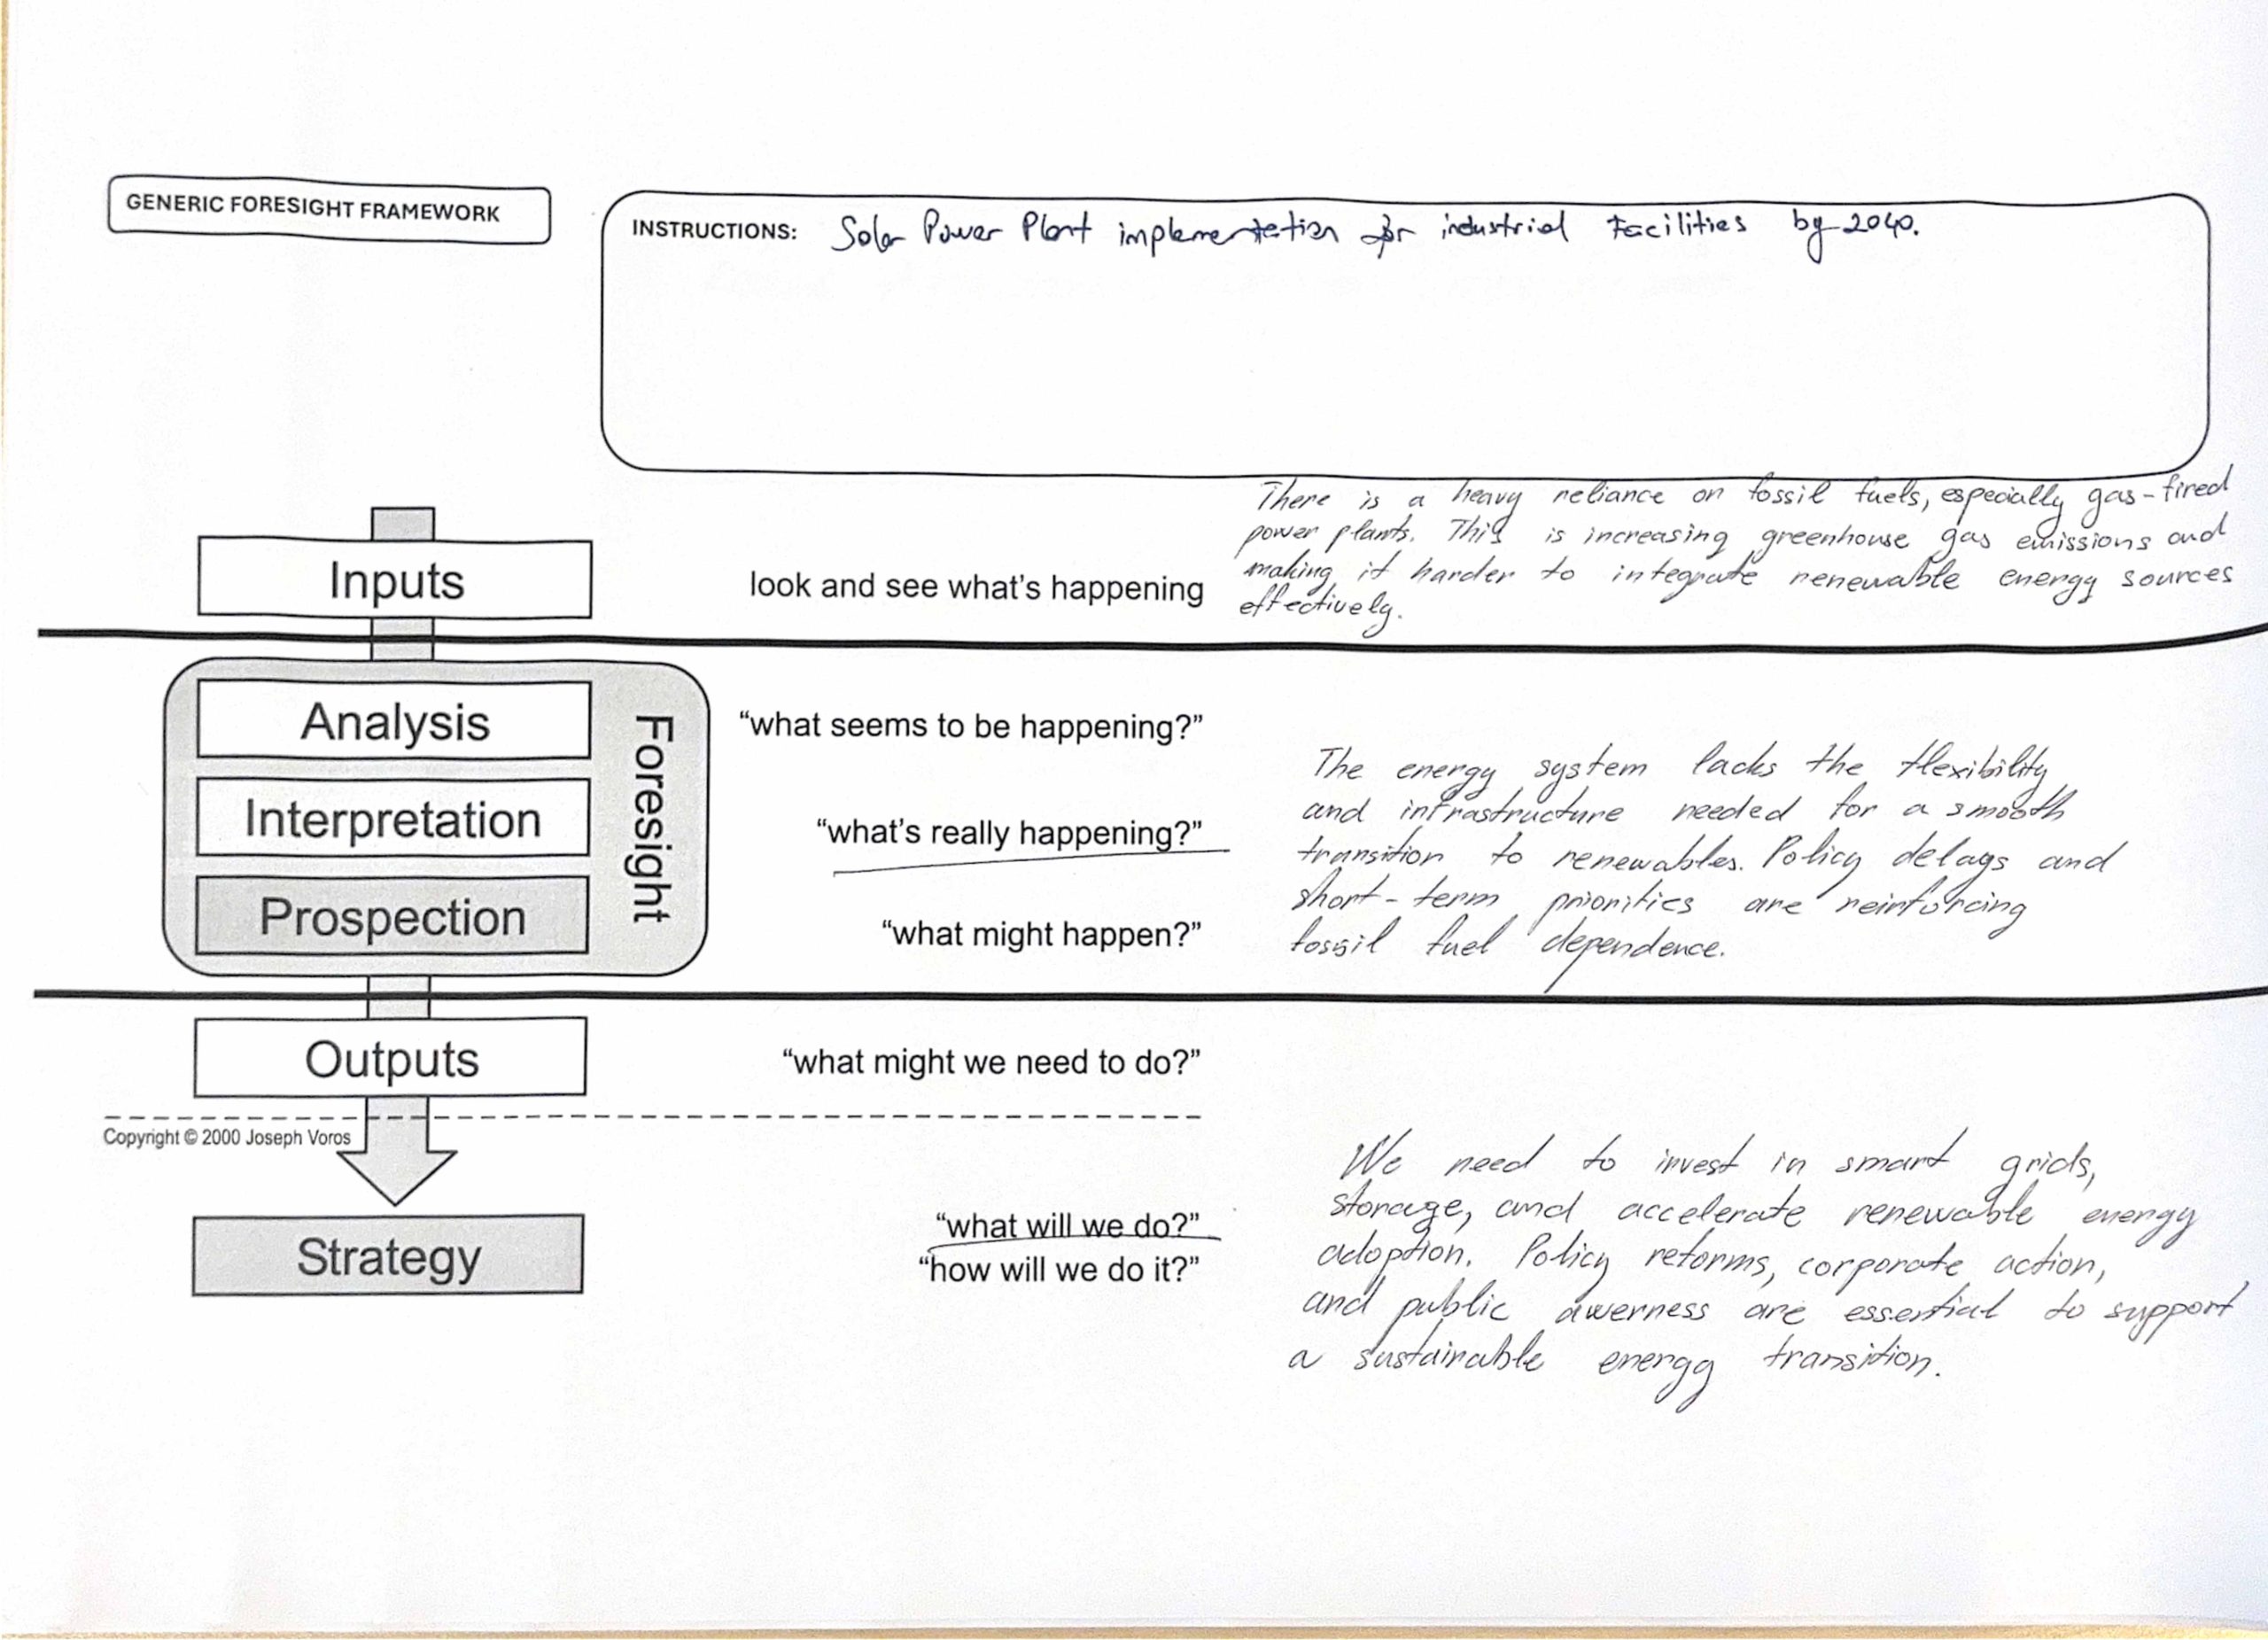 GENERIC FORESIGHT FRAMEWORK
INSTRUCTIONS: Solar Power Plant implementation for industrial Facilities by 2040.
There is a heavy reliance on fossil fuels, especially gas-fired
power plants. This is increasing greenhouse gas emissions and
making it harder to integrate renewable energy sources
effectively.
Inputs
look and see what's happening
Foresight
Analysis
“what seems to be happening?”
Interpretation
“what's really happening?”
Prospection
“what might happen?”
The energy system lacks the flexibility
and infrastructure needed for a smooth
transition to renewables. Policy delays and
short-term priorities are reinforcing
fossil fuel dependence.
Outputs
“what might we need to do?”
Copyright © 2000 Joseph Voros
Strategy
“what will we do?”
“how will we do it?”
We need to invest in smart grids,
storage, and accelerate renewable energy
adoption. Policy reforms, corporate action,
and public awerness are essential to support
a sustainable energy transition.